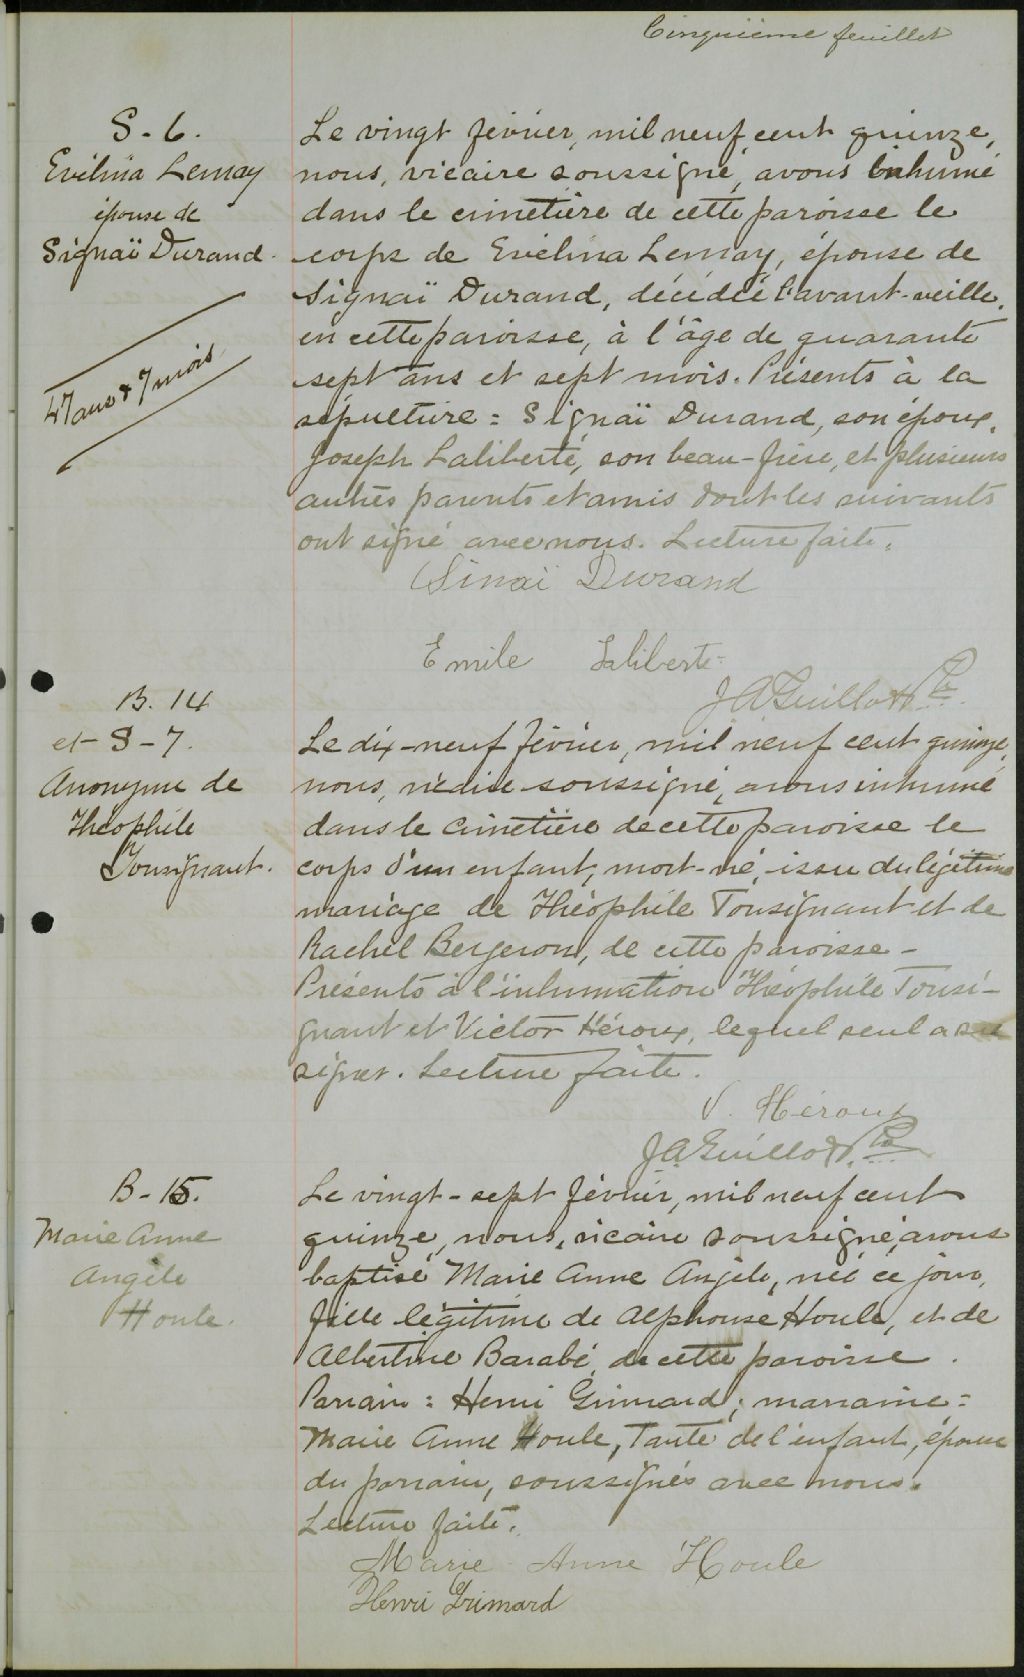 Cinquième feuillet
S-6.
Evélina Lemay
épouse de
Signaï Durand.
47 ans & 7 mois
Le vingt février, mil neuf cent quinze,
nous, vicaire soussigné, avons inhumé
dans le cimetière de cette paroisse le
corps de Evélina Lemay, épouse de
Signaï Durand, décédée l'avant-veille,
en cette paroisse, à l'âge de quarante
sept ans et sept mois. Présents à la
sépulture = Signaï Durand, son époux,
Joseph Laliberté, son beau-frère, et plusieurs
autres parents et amis dont les suivants
ont signé avec nous. Lecture faite.
Sinaï Durand
Emile Laliberté
J A Guillot Ptre
B. 14
et S-7.
Anonyme de
Théophile
Tousignant.
Le dix-neuf février, mil neuf cent quinze,
nous, vicaire soussigné, avons inhumé
dans le cimetière de cette paroisse le
corps d'un enfant, mort-né, issu du légitime
mariage de Théophile Tousignant et de
Rachel Bergeron, de cette paroisse -
Présents à l'inhumation Théophile Tousi-
gnant et Victor Héroux, lequel seul a su
signer. Lecture faite.
V. Héroux
J A Guillot Ptre
B-15.
Marie Anne
Angèle
Houle.
Le vingt-sept février, mil neuf cent
quinze, nous, vicaire soussigné, avons
baptisé Marie Anne Angèle, née ce jour,
fille légitime de Alphonse Houle, et de
Albertine Barabé, de cette paroisse.
Parrain : Henri Grimard ; marraine =
Marie Anne Houle, tante de l'enfant, épouse
du parrain, soussignés avec nous.
Lecture faite.
Marie-Anne Houle
Henri Grimard